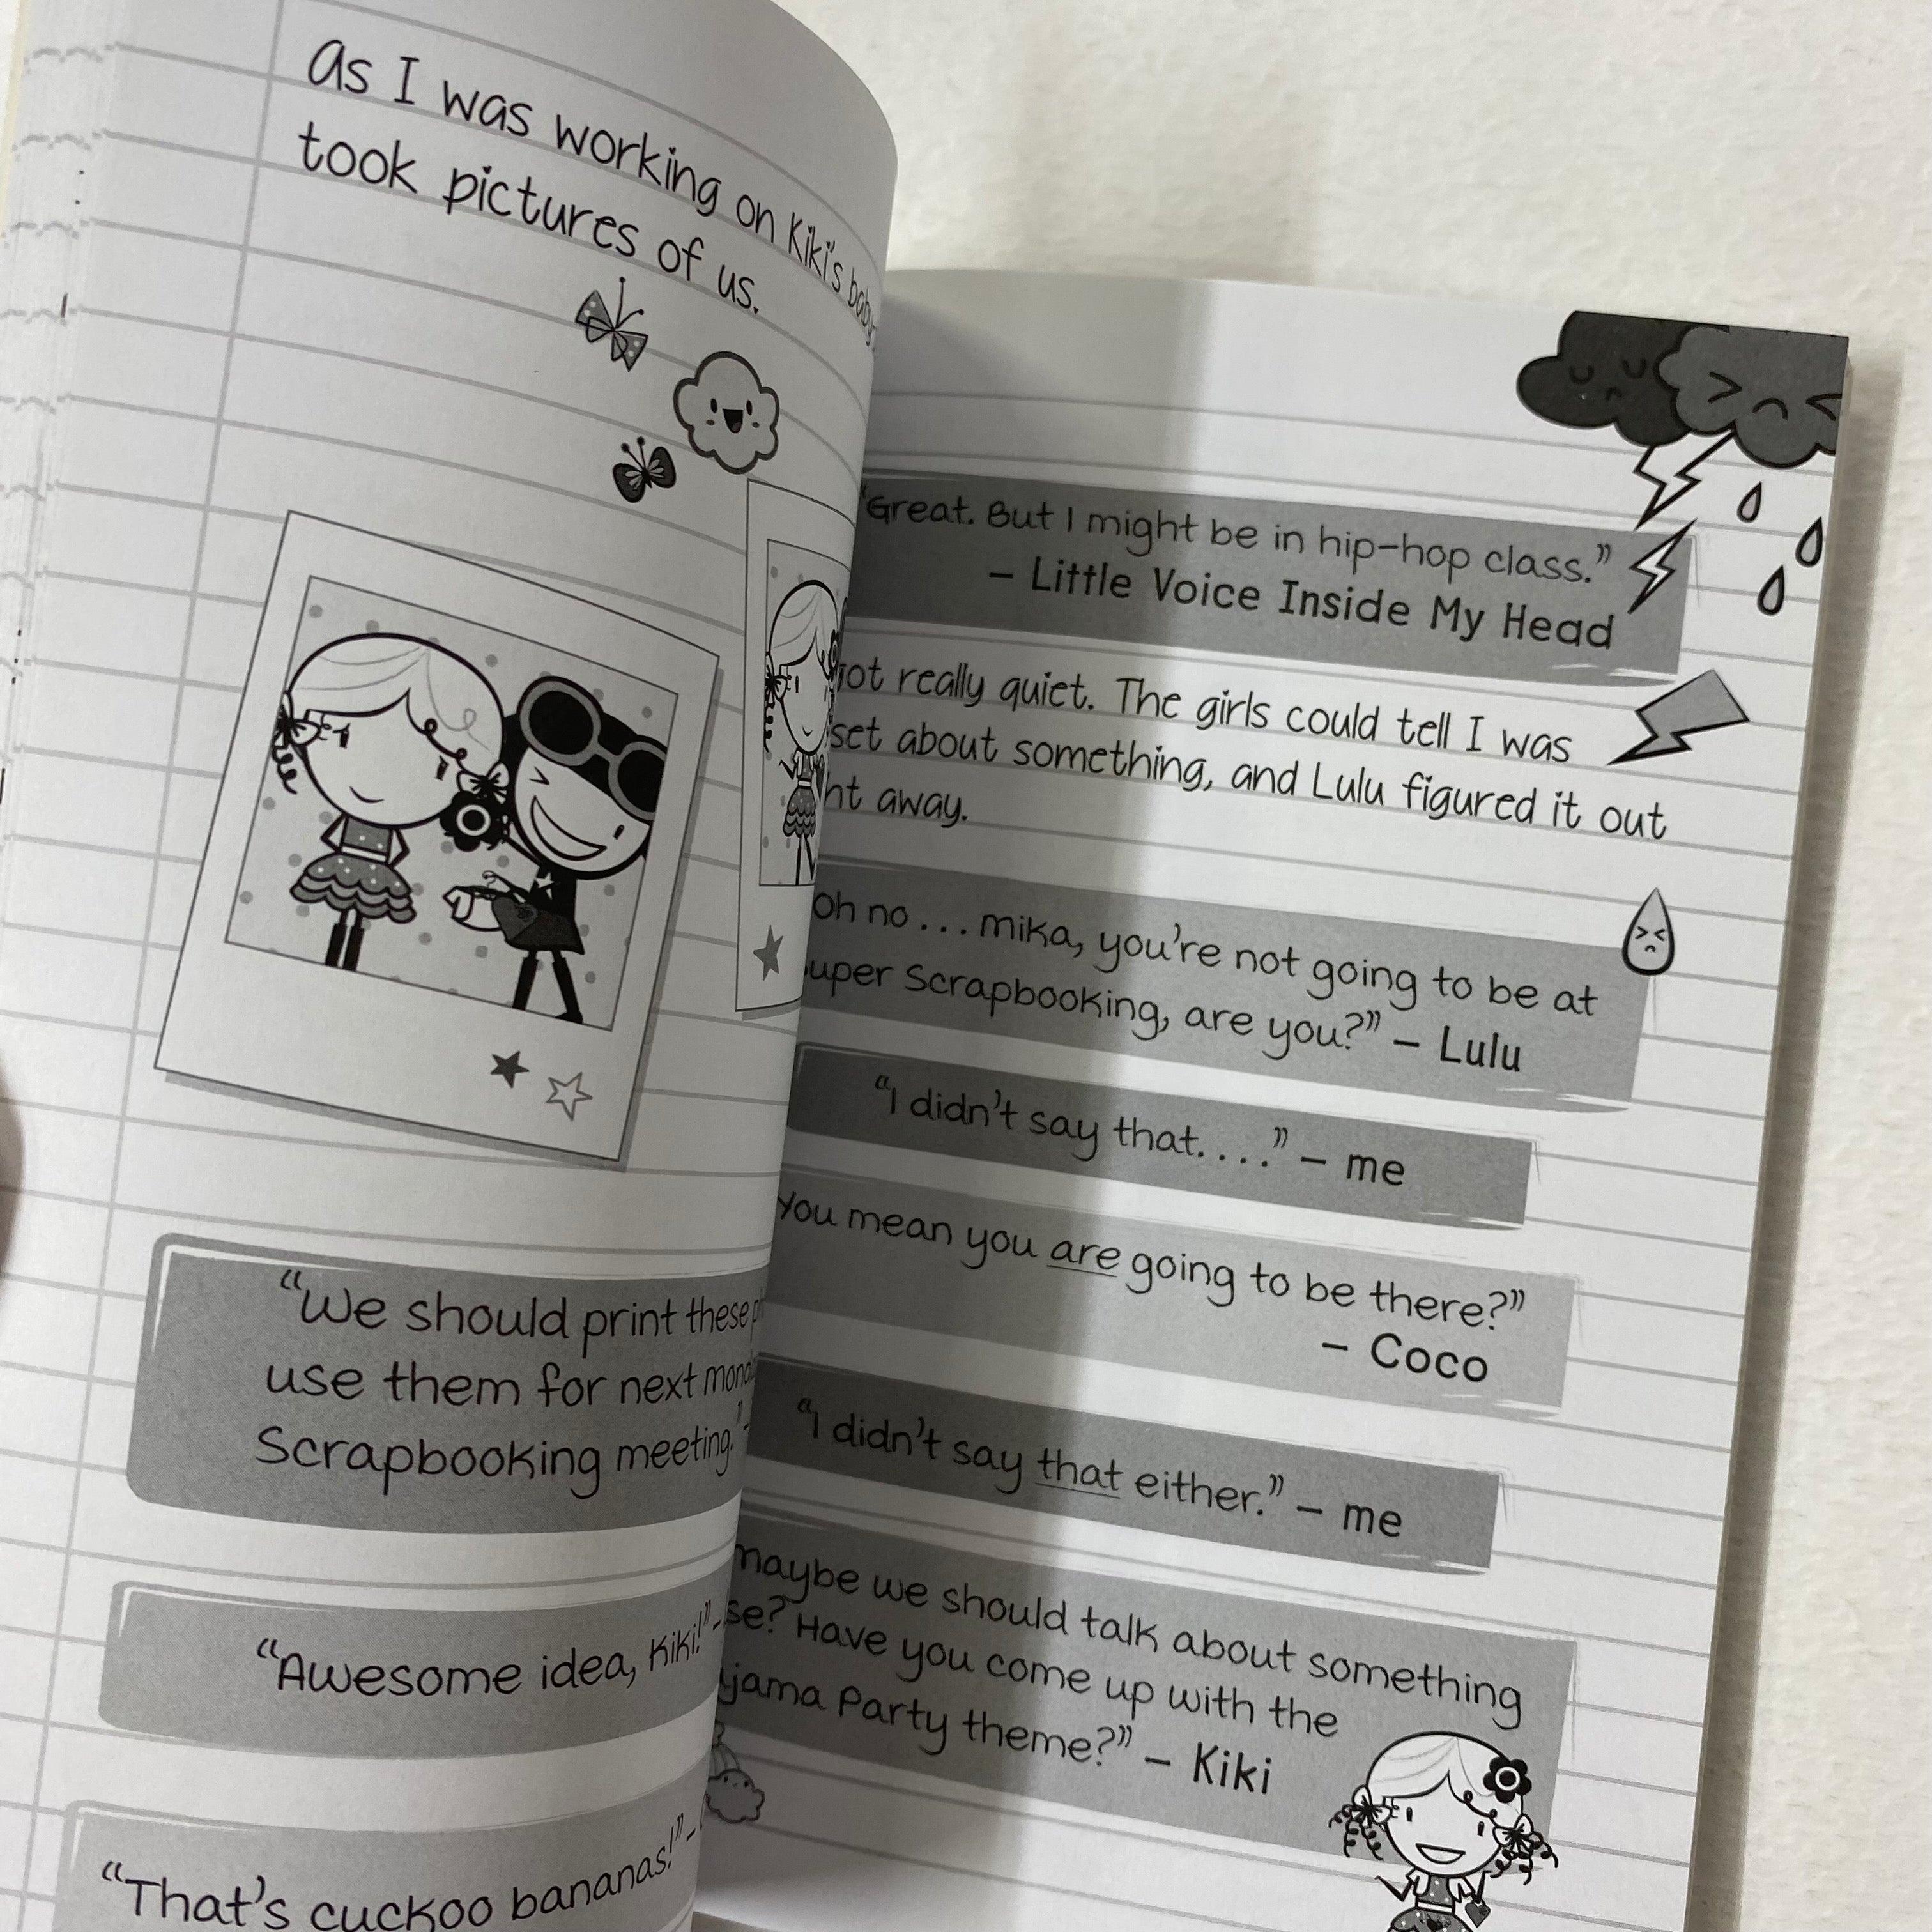 as I was working on Kiki's baby
took pictures of us.
"We should print these
use them for next
Scrapbooking meeting."
"Awesome idea, Kiki!" -
"That's cuckoo bananas!" -
"Great. But I might be in hip-hop class."
– Little Voice Inside My Head
really quiet. The girls could tell I was
about something, and Lulu figured it out
away.
oh no . . . mika, you're not going to be at
Scrapbooking, are you?" – Lulu
"I didn't say that. . . ." – me
You mean you are going to be there?"
– Coco
"I didn't say that either." – me
maybe we should talk about something
Have you come up with the
Party theme?" – Kiki